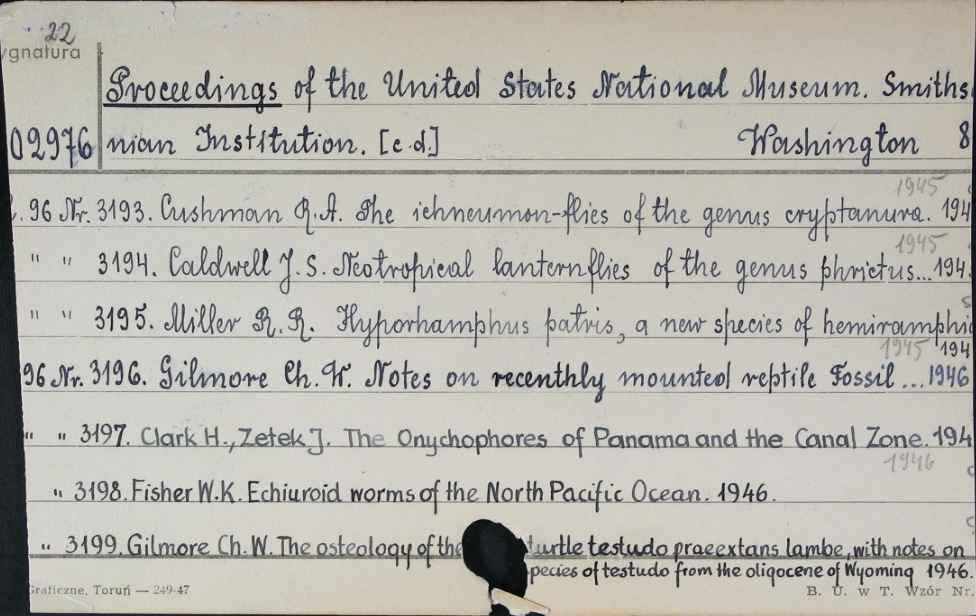 22
ygnatura
Proceedings of the United States National Museum. Smiths
02976 nian Institution. [c.d.] Washington 8
1945
. 96 Nr. 3193. Cushman R.A. The ichneumon-flies of the genus cryptanura. 194
1945
" " 3194. Caldwell J. S. Neotropical lanternflies of the genus phrictus... 194
" " 3195. Miller R. R. Hyporhamphus patris, a new species of hemiramphi
1945 194
96 Nr. 3196. Gilmore Ch. W. Notes on recenthly mounted reptile Fossil ... 1946
" " 3197. Clark H., Zetek J. The Onychophores of Panama and the Canal Zone. 194
1946
" 3198. Fisher W.K. Echiuroid worms of the North Pacific Ocean. 1946.
" 3199. Gilmore Ch. W. The osteology of the turtle testudo praeextans lambe, with notes on
pecies of testudo from the oligocene of Wyoming 1946.
Graficzne, Toruń — 249-47 B. U. w T. Wzór Nr.